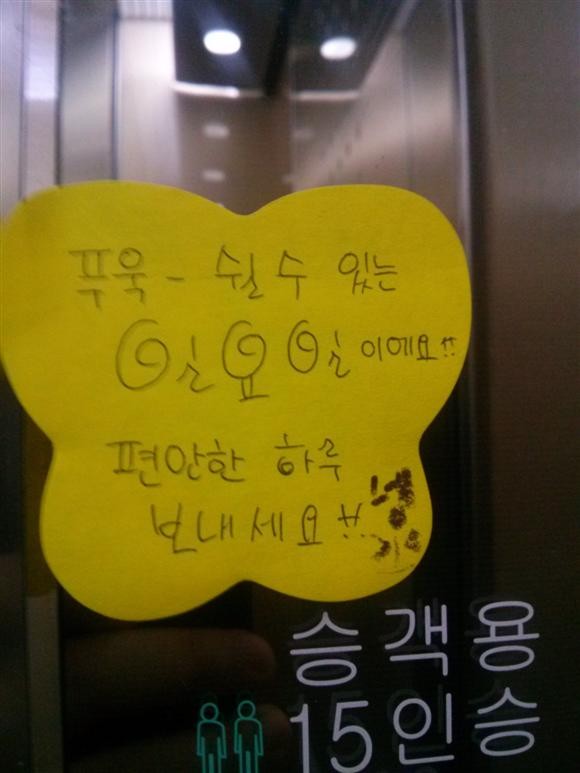 푸욱 - 쉴 수 있는
일요일이에요!!
편안한 하루
보내세요!!
승객용
15인승